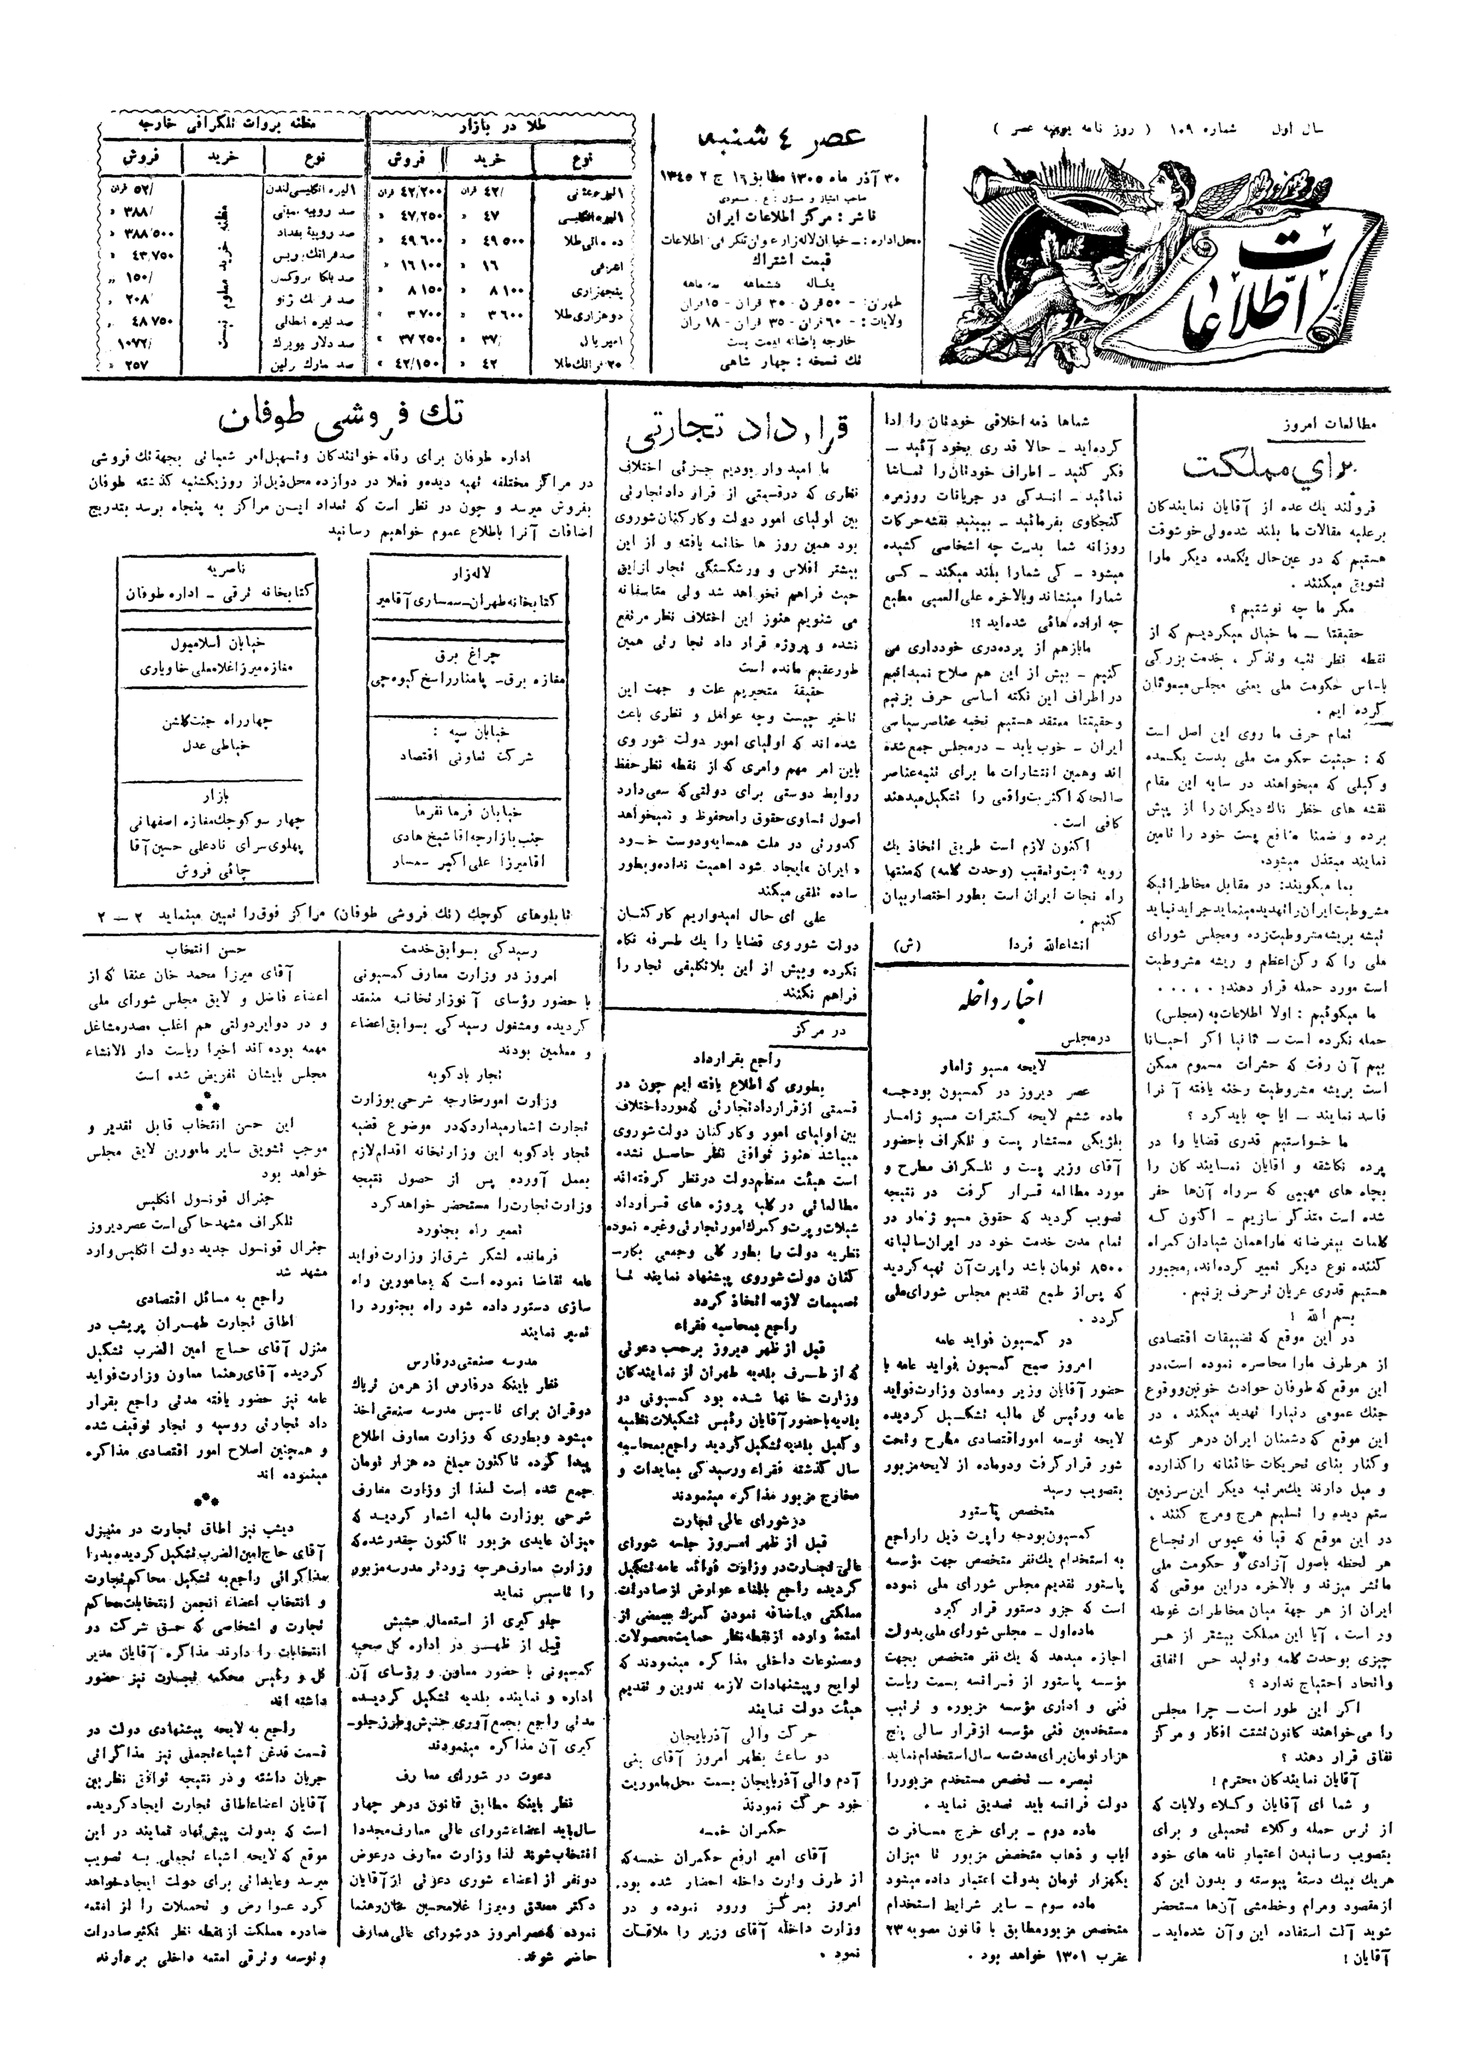 سال اول شماره ۱۰۹ ( روز نامه یومیه عصر )
اطلاعات
عصر ٤ شنبه
۳۰ آذر ماه ۱۳۰۵ مطابق ۱۶ ج ۲ ۱۳٤۵
صاحب امتیاز و مسؤل : ع . مسعودی
ناشر : مرکز اطلاعات ایران
قیمت اشتراك
یکساله ششماهه سه ماهه
طهران : – ۵۰ قران – ۳۰ قران – ۱۵ قران
ولایات : – ۶۰ قران – ۳۵ قران – ۱۸ قران
خارجه باضافه قیمت پست
تك نسخه : چهار شاهی
طلا در بازار
نوع خرید فروش
مظنه بروات تلگرافی خارجه
نوع خرید فروش
مطالعات امروز
برای مملکت
قرولند یك عده از آقایان نمایندگان
برعلیه مقالات ما بلند شده ولی خوشوقت
هستیم که در عین حال یکعده دیگر مارا
تشویق میکنند .
مگر ما چه نوشتیم ؟
حقیقتا – ما خیال میکردیم که از
نقطه نظر تنبه وتذکر ، خدمت بزرگی
باساس حکومت ملی یعنی مجلس مبعوثان
کرده ایم .
تمام حرف ما روی این اصل است
که : حیثیت حکومت ملی بدست یکعده
وکیلی که میخواهند در سایه این مقام
نقشه های خطر ناك دیگران را از پیش
برده و ضمنا منافع پست خود را تامین
نمایند مبتذل میشود.
بما میگویند: در مقابل مخاطراتیکه
مشروطیت ایران را تهدید مینماید جراید نباید
تیشه بریشه مشروطیت زده ومجلس شورای
ملی را که رکن اعظم و ریشه مشروطیت
است مورد حمله قرار دهند! . . . . .
ما میگوئیم : اولا اطلاعات به (مجلس)
حمله نکرده است – ثانیا اگر احیانا
بیم آن رفت که حشرات مسموم ممکن
است بریشه مشروطیت رخنه یافته آنرا
فاسد نمایند – ایا چه باید کرد ؟
ما خواستیم قدری قضایا را در
پرده نگاشته و اقایان نمایندگان را
بچاه های مهیبی که سرراه آن‌ها حفر
شده است متذکر سازیم – اکنون که
کلمات بیغرضانه ماراهمان شیادان گمراه
کننده نوع دیگر تعبیر کرده‌اند، مجبور
هستیم قدری عریان تر حرف بزنیم.
بسم الله !
در این موقع که تضییقات اقتصادی
از هرطرف مارا محاصره نموده است، در
این موقع که طوفان حوادث خونین ووقوع
جنك عمومی دنیارا تهدید میکند ، در
این موقع که دشمنان ایران درهر گوشه
وکنار بنای تحریکات خائنانه را گذارده
و میل دارند یك مرتبه دیگر این سرزمین
ستم دیده را تسلیم هرج ومرج کنند ،
در این موقع که قیافه عبوس ارتجاع
هر لحظه باصول آزادی و حکومت ملی
مااثر میزند و بالاخره دراین موقعی که
ایران از هر جهة میان مخاطرات غوطه
ور است ، آیا این مملکت بیشتر از هر
چیزی بوحدت کلمه وتولید حس اتفاق
واتحاد احتیاج ندارد ؟
اگر این طور است – چرا مجلس
را می‌خواهند کانون تشتت افکار و مرکز
نفاق قرار دهند ؟
آقایان نمایندگان محترم !
و شما ای آقایان وکلاء ولایات که
از ترس حمله وکلاء تحمیلی و برای
بتصویب رسانیدن اعتبار نامه های خود
هریك بیك دستهٔ پیوسته و بدون این که
ازمقصود ومرام وخط‌مشی آن‌ها مستحضر
شوید آلت استفاده این وآن شده‌اید –
آقایان !
شماها ذمه اخلاقی خودتان را ادا
کرده‌اید – حالا قدری بخود آئید –
فکر کنید – اطراف خودتان را تماشا
نمائید – اندکی در جریانات روزمره
کنجکاوی بفرمائید – ببینید نقشه حرکات
روزانه شما بدست چه اشخاصی کشیده
میشود – کی شمارا بلند میکند – کسی
شمارا مینشاند وبالاخره علی‌العمیی مطیع
چه اراده هائی شده‌اید ؟!
مابازهم از پرده‌دری خودداری می
کنیم – بیش از این هم صلاح نمیدانیم
در اطراف این نکته اساسی حرف بزنیم
وحقیقتا معتقد هستیم نخبه عناصر سیاسی
ایران – خوب یابد – درمجلس جمع شده
اند وهمین انتشارات ما برای تنبه عناصر
صالحه که اکثریت واقعی را تشکیل میدهند
کافی است .
اکنون لازم است طریق اتخاذ یك
رویه ثابت وتعقیب (وحدت کلمه) که منتها
راه نجات ایران است بطور اختصار بیان
کنیم .
انشاءالله فردا (ش)
اخبار داخله
در مجلس
لایحه مسیو ژامار
عصر دیروز در کمسیون بودجه
ماده ششم لایحه کنترات مسیو ژامار
بلژیکی مستشار پست و تلگراف باحضور
آقای وزیر پست و تلگراف مطرح و
مورد مطالعه قرار گرفت در نتیجه
تصویب گردید که حقوق مسیو ژمار در
تمام مدت خدمت خود در ایران سالیانه
۸۵۰۰ تومان باشد راپرت آن تهیه گردید
که پس از طبع تقدیم مجلس شورای‌ملی
گردد .
در کمسیون فواید عامه
امروز صبح کمسیون فواید عامه با
حضور آقایان وزیر ومعاون وزارت فواید
عامه ورئیس کل مالیه تشکیل گردیده
لایحه توسعه امور اقتصادی مطرح وتحت
شور قرار گرفت ودوماده از لایحه مزبور
بتصویب رسید
متخصص پاستور
کمسیون بودجه راپرت ذیل را راجع
به استخدام یك نفر متخصص جهت مؤسسه
پاستور تقدیم مجلس شورای ملی نموده
است که جزو دستور قرار گیرد
ماده‌اول – مجلس شورای ملی بدولت
اجازه میدهد که یك نفر متخصص بجهت
مؤسسه پاستور از فرانسه بسمت ریاست
فنی و اداری مؤسسه مزبوره و ترتیب
مستخدمین فنی مؤسسه ازقرار سالی پنج
هزار تومان برای مدت سه سال استخدام نماید
تبصره – تخصص مستخدم مزبوررا
دولت فرانسه باید تصدیق نماید .
ماده دوم – برای خرج مسافرت
ایاب و ذهاب متخصص مزبور تا میزان
یکهزار تومان بدولت اعتبار داده میشود
ماده سوم – سایر شرایط استخدام
متخصص مزبور مطابق با قانون مصوبه ۲۳
عقرب ۱۳۰۱ خواهد بود .
قرارداد تجارتی
ما امیدوار بودیم جزئی اختلاف
نظری که درقسمتی از قرار داد تجارتی
بین اولیای امور دولت وکارکنان شوروی
بود همین روز ها خاتمه یافته و از این
بیشتر افلاس و ورشکستگی تجار ازاین
حیث فراهم نخواهد شد ولی متاسفانه
می شنویم هنوز این اختلاف نظر مرتفع
نشده و پروژه قرار داد تجارتی همین
طورعقیم مانده است
حقیقة متحیریم علت و جهت این
تاخیر چیست وچه عوامل و نظری باعث
شده اند که اولیای امور دولت شوروی
باین امر مهم وامری که از نقطه نظر حفظ
روابط دوستی برای دولتی که سعی دارد
اصول تساوی حقوق را محفوظ و نمیخواهد
کدورتی در ملت همسایه ودوست خود
« ایران » ایجاد شود اهمیت نداده وبطور
ساده تلقی میکند
علی ای حال امیدواریم کارکنان
دولت شوروی قضایا را یك طرفه نگاه
نکرده وبیش از این بلاتکلیفی تجار را
فراهم نکنند
در مرکز
راجع بقرارداد
بطوری که اطلاع یافته ایم چون در
قسمتی از قرارداد تجارتی که مورد اختلاف
بین اولیای امور وکارکنان دولت شوروی
میباشد هنوز توافق نظر حاصل نشده
است هیئت معظم دولت در نظر گرفته‌اند
مطالعاتی در کلیه پروژه های قرارداد
شیلات و پرت و گمرك امور تجارتی وغیره نموده
نظریه دولت را بطور کلی وجمعی بکار–
کنان دولت شوروی پیشنهاد نمایند تا
تصمیمات لازمه اتخاذ گردد
راجع بمحاسبه فقراء
قبل از ظهر دیروز برحسب دعوتی
که از طرف بلدیه طهران از نمایندگان
وزارت خانها شده بود کمسیونی در
بلدیه باحضور آقایان رئیس تشکیلات نظمیه
وکفیل بلدیه تشکیل گردید راجع بمحاسبه
سال گذشته فقراء ورسیدگی بعایدات و
مخارج مزبور مذاکره مینمودند
درشورای عالی تجارت
قبل از ظهر امروز جلسه شورای
عالی تجارت در وزارت فوائد عامه تشکیل
گردیده راجع بالغاء عوارض از صادرات
مملکتی و اضافه نمودن گمرك بعضی از
امتعهٔ وارده از نقطه نظر حمایت محصولات
ومصنوعات داخلی مذاکره مینمودند که
لوایح و پیشنهادات لازمه تدوین و تقدیم
هیئت دولت نمایند
حرکت والی آذربایجان
دو ساعت بظهر امروز آقای بنی
آدم والی آذربایجان بسمت محل ماموریت
خود حرکت نمودند
حکمران خمسه
آقای امیر ارفع حکمران خمسه که
از طرف وارت داخله احضار شده بود،
امروز بمرکز ورود نموده و در
وزارت داخله آقای وزیر را ملاقات
نمود .
تك فروشی طوفان
اداره طوفان برای رفاه خوانندگان وتسهیل امر شعباتی بجهة تك فروشی
در مراکز مختلفه تهیه دیده و فعلا در دوازده محل ذیل از روز یکشنبه گذشته طوفان
بفروش میرسد و چون در نظر است که تعداد ایسن مراکز به پنجاه برسد بتدریج
اضافات آنرا باطلاع عموم خواهیم رسانید
لاله‌زار
کتابخانه طهران – سمساری آقامیر
چراغ برق
مغازه برق – پامنار
خیابان سپه :
شرکت تعاونی اقتصاد
خیابان فرما نفرما
جنب بازارچه اقا شیخ هادی
اقامیرزا علی اکبر سمسار
ناصریه
کتابخانه ترقی – اداره طوفان
خیابان اسلامبول
مغازه میرزا غلامعلی خاویاری
چهارراه جنت گلشن
خیاطی عدل
بازار
چهار سو کوچك مغازه اصفهانی
پهلوی سرای نادعلی حسین آقا
چائی فروش
تابلوهای کوچك (تك فروشی طوفان) مراکز فوق را تعیین مینماید ۲ – ۲
رسیدگی بسوابق خدمت
امروز در وزارت معارف کمسیونی
با حضور رؤسای آنوزارتخانه منعقد
گردیده ومشغول رسیدگی بسوابق اعضاء
و معلمین بودند
تجار بادکوبه
وزارت امورخارجه شرحی بوزارت
تجارت اشعار میدارد که در موضوع قضیه
تجار بادکوبه این وزارتخانه اقدام لازم
بعمل آورده پس از حصول نتیجه
وزارت تجارت را مستحضر خواهد کرد
تعمیر راه بجنورد
فرمانده لشگر شرق از وزارت فواید
عامه تقاضا نموده است که بمامورین راه
سازی دستور داده شود راه بجنورد را
تعمیر نمایند
مدرسه صنعتی درفارس
نظر باینکه درفارس از هرمن تریاك
دوقران برای تاسیس مدرسه صنعتی اخذ
میشود وبطوری که وزارت معارف اطلاع
پیدا کرده تاکنون مبلغ ده هزار تومان
جمع شده است لهذا از وزارت معارف
شرحی بوزارت مالیه اشعار گردید که
میزان عایدی مزبور تاکنون چقدر شده که
وزارت معارف هرچه زودتر مدرسه مزبور
را تاسیس نماید
جلو گیری از استعمال حشیش
قبل از ظهر در اداره کل صحیه
کمسیونی با حضور معاون و رؤسای آن
اداره و نماینده بلدیه تشکیل گردیده
مدتی راجع بجمع آوری حشیش وطرز جلو–
گیری آن مذاکره مینمودند
دعوت در شورای معارف
نظر باینکه مطابق قانون درهر چهار
سال باید اعضاء شورای عالی معارف مجددا
انتخاب شوند لذا وزارت معارف درعوض
دونفر از اعضاء شوری دعوتی از آقایان
دکتر مصدق ومیرزا غلامحسین خان رهنما
نموده که عصر امروز در شورای عالی معارف
حاضر شوند
حسن انتخاب
آقای میرزا محمد خان عنقا که از
اعضاء فاضل و لایق مجلس شورای ملی
و در دوایردولتی هم اغلب مصدر مشاغل
مهمه بوده اند اخیرا ریاست دار الانشاء
مجلس بایشان تفویض شده است
این حسن انتخاب قابل تقدیر و
موجب تشویق سایر مامورین لایق مجلس
خواهد بود
جنرال قونسول انگلیس
تلگراف مشهد حاکی است عصر دیروز
جنرال قونسول جدید دولت انگلیس وارد
مشهد شد
راجع به مسائل اقتصادی
اطاق تجارت طهران پریشب در
منزل آقای حاج امین الضرب تشکیل
گردیده آقای رهنما معاون وزارت فواید
عامه نیز حضور یافته مدتی راجع بقرار
داد تجارتی روسیه و تجار توقیف شده
و همچنین اصلاح امور اقتصادی مذاکره
مینموده اند
دیشب نیز اطاق تجارت در منزل
آقای حاج امین الضرب تشکیل گردیده بدوا
مذاکراتی راجع به تشکیل محاکم تجارت
و انتخاب اعضاء انجمن انتخابات محاکم
تجارت و اشخاصی که حق شرکت در
انتخابات را دارند مذاکره آقایان مدیر
کل و رئیس محکمه تجارت نیز حضور
داشته اند
راجع به لایحه پیشنهادی دولت در
قسمت قدغن اشیاء تجملی نیز مذاکراتی
جریان داشته و در نتیجه توافق نظر بین
آقایان اعضاء اطاق تجارت ایجاد گردیده
است که بدولت پیشنهاد نمایند در این
موقع که لایحه اشیاء تجملی به تصویب
میرسد وعایداتی برای دولت ایجاد خواهد
کرد عوارض و تحمیلات را از امتعه
صادره مملکت از نقطه نظر تکثیر صادرات
وتوسعه وترقی امتعه داخلی بردارند